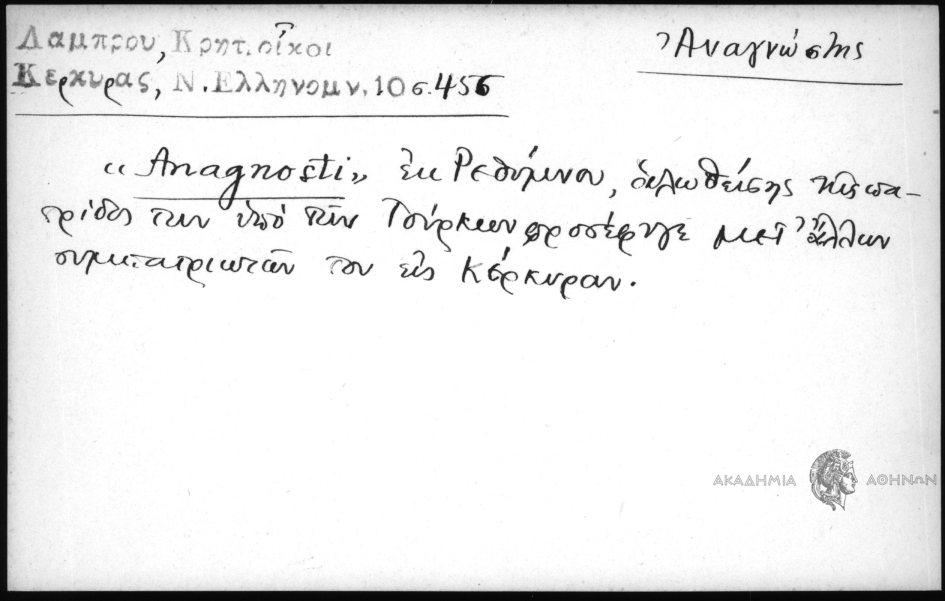 Λαμπρου, Κρητ. οἶκοι
Κερκυρας, Ν. Ελληνομν. 10 σ. 456
Ἀναγνώστης
"Anagnosti" ἐκ Ρεθύμνου, ἁλωθείσης τῆς πα-
τρίδος των ὑπό τῶν Τούρκων προσέφυγε μετ' ἄλλων
συμπατριωτῶν του εἰς Κέρκυραν.
ΑΚΑΔΗΜΙΑ ΑΘΗΝΩΝ